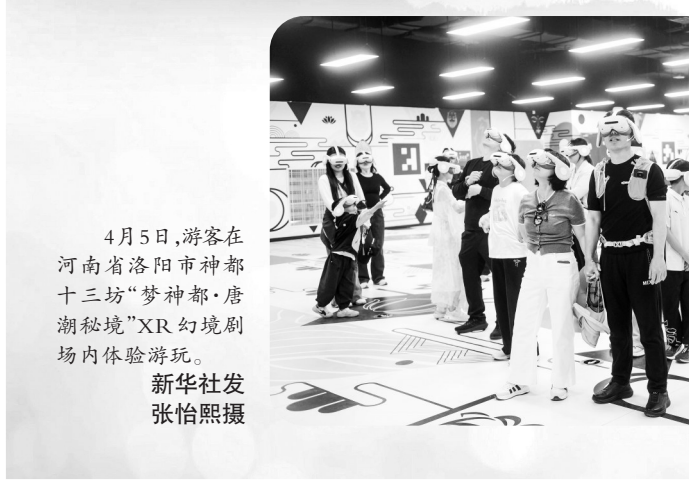 4月5日,游客在
河南省洛阳市神都
十三坊“梦神都·唐
潮秘境”XR 幻境剧
场内体验游玩。
新华社发
张怡熙摄